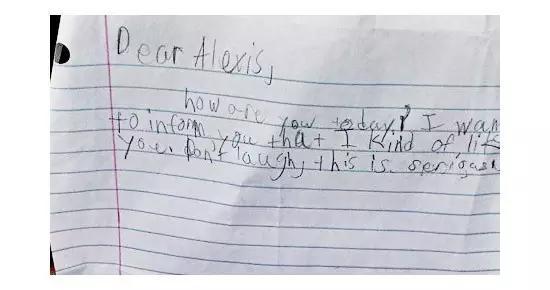 Dear Alexis,
how are you today? I wan
to inform you that I kind of lik
you. Don't laugh, this is serigash